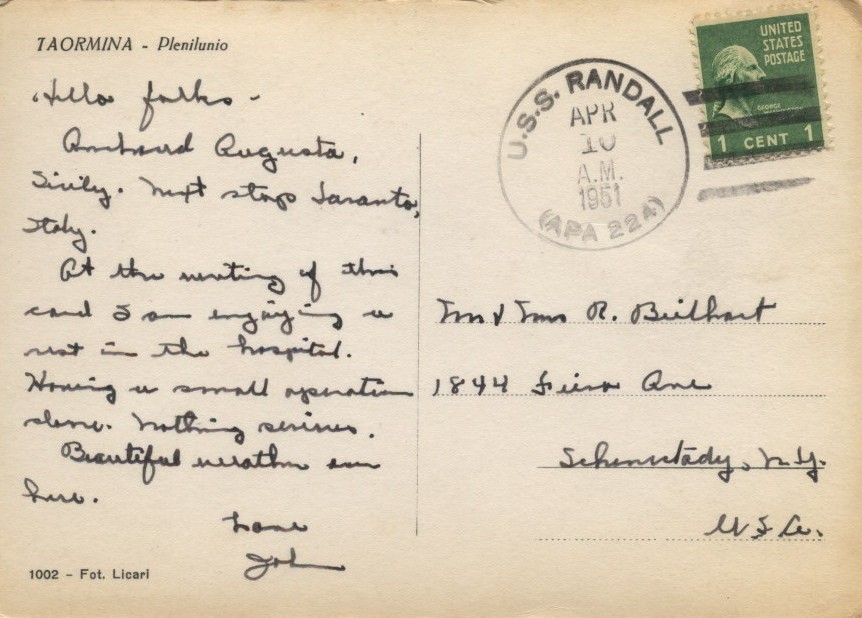 TAORMINA - Plenilunio
Hello folks -
Anchored Augusta,
Sicily. Next stop Taranto,
Italy.
At the writing of this
card I am enjoying a
rest in the hospital.
Having a small operation
done. Nothing serious.
Beautiful weather over
here.
Love
John
1002 - Fot. Licari
U.S.S. RANDALL
APR
10
A.M.
1951
(APA 224)
UNITED
STATES
POSTAGE
GEORGE WASHINGTON
1 CENT 1
Mr & Mrs R. Beilhart
1844 Ave
Schenectady, N.Y.
U.S.A.